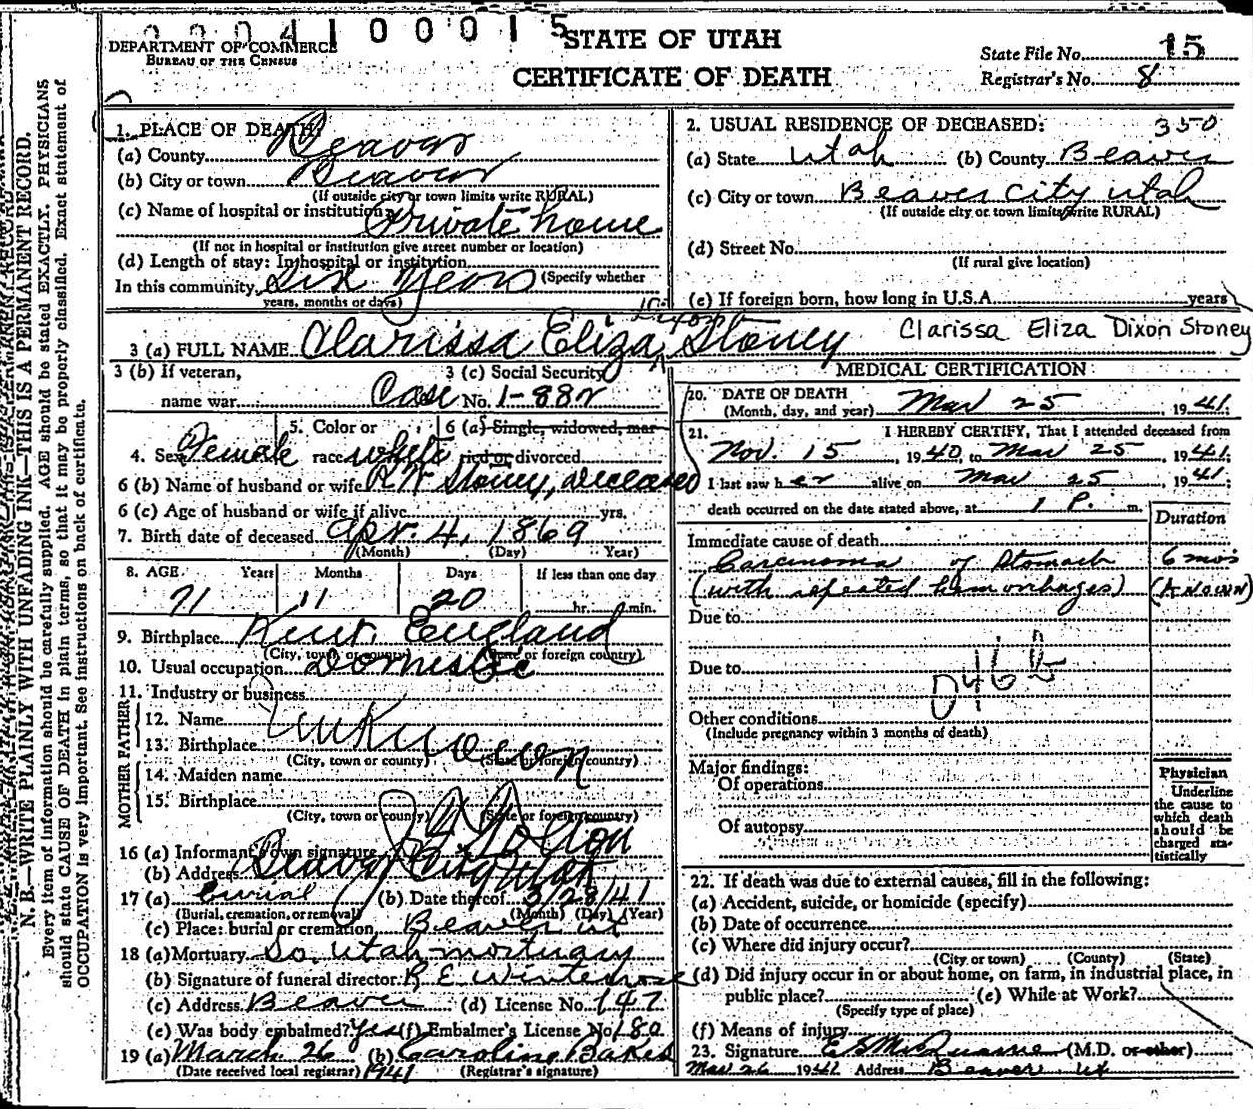 0 0 0 4 1 0 0 0 1 5
DEPARTMENT OF COMMERCE
BUREAU OF THE CENSUS
STATE OF UTAH
CERTIFICATE OF DEATH
State File No. 15
Registrar's No. 8
N. B.—WRITE PLAINLY WITH UNFADING INK—THIS IS A PERMANENT RECORD.
Every item of information should be carefully supplied. AGE should be stated EXACTLY. PHYSICIANS
should state CAUSE OF DEATH in plain terms, so that it may be properly classified. Exact statement of
OCCUPATION is very important. See instructions on back of certificate.
1. PLACE OF DEATH:
(a) County Beaver
(b) City or town Beaver
(If outside city or town limits write RURAL)
(c) Name of hospital or institution Private home
(If not in hospital or institution give street number or location)
(d) Length of stay: In hospital or institution
(Specify whether
In this community Six Years
years, months or days)
2. USUAL RESIDENCE OF DECEASED: 350
(a) State Utah (b) County Beaver
(c) City or town Beaver City Utah
(If outside city or town limits write RURAL)
(d) Street No.
(If rural give location)
(e) If foreign born, how long in U.S.A. years
3 (a) FULL NAME Clarissa Eliza Dixon Stoney Clarissa Eliza Dixon Stoney
3 (b) If veteran,
name war
3 (c) Social Security
Case No. 1-882
4. Sex Female
5. Color or
race white
6 (a) Single, widowed, mar-
ried or divorced
6 (b) Name of husband or wife R W Stoney, deceased
6 (c) Age of husband or wife if alive yrs.
7. Birth date of deceased Apr. 4, 1869
(Month) (Day) Year)
8. AGE Years Months Days If less than one day
71 11 20 hr. min.
9. Birthplace Kent England
(City, town, or county) (State or foreign country)
10. Usual occupation Domestic
11. Industry or business
FATHER
12. Name Unknown
13. Birthplace
(City, town or county) (State or foreign country)
MOTHER
14. Maiden name
15. Birthplace
(City, town or county) (State or foreign country)
16 (a) Informant's own signature
(b) Address Beaver City Utah
17 (a) burial (b) Date thereof 3/28/41
(Burial, cremation, or removal) (Month) (Day) (Year)
(c) Place: burial or cremation Beaver Ut
18 (a) Mortuary So. Utah mortuary
(b) Signature of funeral director R E Winterrose
(c) Address Beaver (d) License No. 147
(e) Was body embalmed? Yes (f) Embalmer's License No. 180
19 (a) March 26 1941 (b) Caroline Bakes
(Date received local registrar) (Registrar's signature)
MEDICAL CERTIFICATION
20. DATE OF DEATH
(Month, day, and year) Mar 25, 1941.
21. I HEREBY CERTIFY, That I attended deceased from
Nov. 15, 1940, to Mar 25, 1941.
I last saw her alive on Mar 25, 1941;
death occurred on the date stated above, at 1 P. m.
Duration
Immediate cause of death
Carcinoma of Stomach 6 mos
(with repeated hemorrhages) (KNOWN)
Due to
Due to
046b
Other conditions
(Include pregnancy within 3 months of death)
Major findings:
Of operations
Of autopsy
Physician
Underline
the cause to
which death
should be
charged sta-
tistically
22. If death was due to external causes, fill in the following:
(a) Accident, suicide, or homicide (specify)
(b) Date of occurrence
(c) Where did injury occur?
(City or town) (County) (State)
(d) Did injury occur in or about home, on farm, in industrial place, in
public place? (e) While at Work?
(Specify type of place)
(f) Means of injury
23. Signature (M.D. or other)
Mar 26 1941 Address Beaver Ut